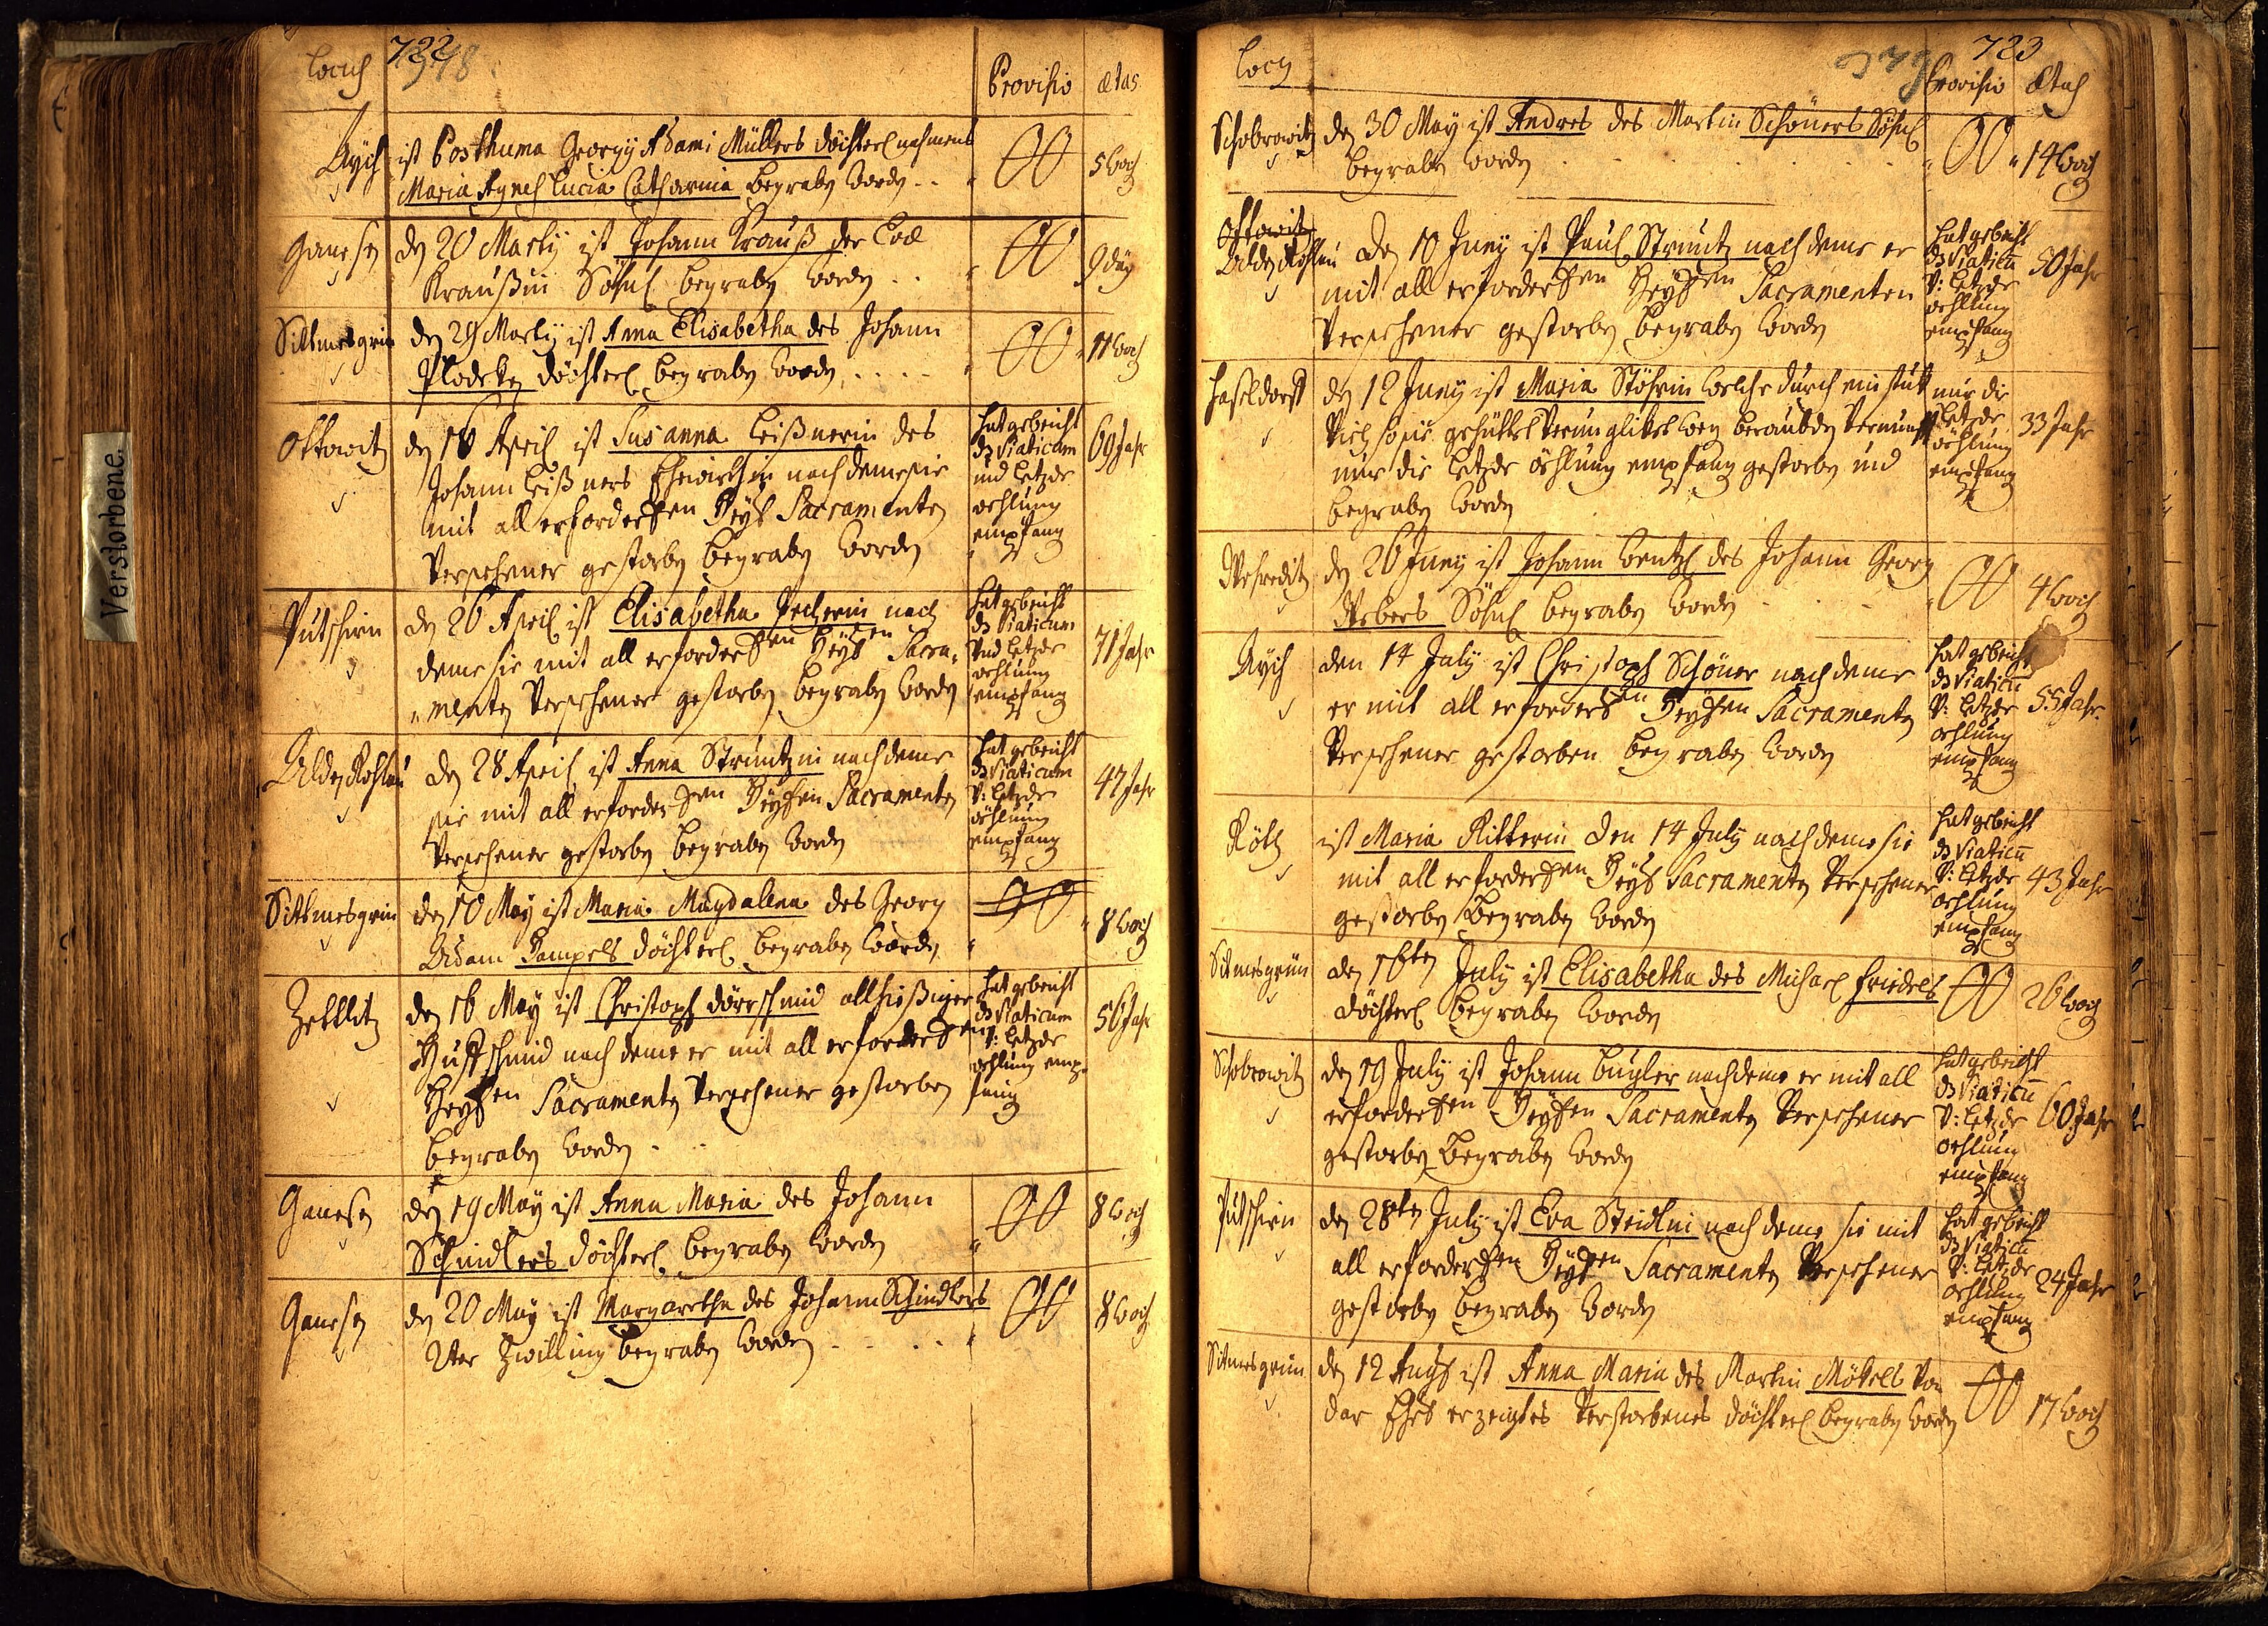 Verstorbene.
Locus
722
348.
Provisio
ætas
Aÿch
ist Posthuma Georgÿ Adami Müllers döchterl nahmens
Maria Agnes Lucia Catharina begraben worden
00
5 Woch
Ganesen
den 20 Martij ist Johann Krauß der Eva
Kraußin Söhnl begraben worden
00
9 däg
Sittmesgrün
den 29 Martij ist Anna Elisabetha des Johann
döchterl begraben worden
00
11 Woch
Ottowitz
den 18 April ist Susanna Leißnerin des
Johann Leißners Ehewirthin nach deme sie
mit all erforderten Heyl Sacramenten
Versehener gestorben begraben worden
hat gebeicht
dz Viaticum
und Letzde
oehlung
empfang
69 Jahr
Putschirn
den 26 April ist Elisabetha nach
deme sie mit all erforderten Heyl Sacra-
menten Versehener gestorben begraben worden
hat gebeicht
dz Viaticum
und Letzde
oehlung
empfang
71 Jahr
Alden Rohlau
den 28 April ist Anna Struntzin nach deme
sie mit all erforderten Heyl Sacramenten
Versehener gestorben begraben worden
hat gebeicht
dz Viaticum
V: Letzde
öehlung
empfang
47 Jahr
Sittmesgrün
den 10 Maÿ ist Maria Magdalena des Georg
Adam Hampels döchterl begraben worden
00
8 Woch
Zettlitz
den 16 Maÿ ist Christoph dörrschmid allhießiger
Huffschmid nach deme er mit all erforderten
Heylen Sacramenten Versehener gestorben
begraben worden
hat gebeicht
dz Viaticum
V: Letzde
oehlung emp-
fang
56 Jahr
Ganesen
den 19 Maÿ ist Anna Maria des Johann
Schindlers döchterl begraben worden
00
8 Woch
Ganesen
den 20 Maÿ ist Margaretha des Johann Schindlers
2ter Zwilling begraben worden
00
8 Woch
Locus
349
723
Provisio
Ætas
Schobrowitz
den 30 Maÿ ist Andres des Martin Schöners Söhnl
begraben worden
00
14 Woch
Ottowitz
Alden Rohlau
den 10 Junÿ ist Paul Struntz nach deme er
mit all erforderten Heylen Sacramenten
Versehener gestorben begraben worden
hat gebeicht
dz Viaticu
V: Letzde
oehlung
empfang
50 Jahr
Haseldorff
den 12 Junÿ ist Maria Stöhrin welche durch ein stuk
Viehe so sie gehüttet Verunglikt weg beraubden Vernunfft
nur die Letzde öehlung empfang gestorben und
begraben worden
nur die
Letzde
öehlung
empfang
33 Jahr
Weheditz
den 26 Junÿ ist Johann Wentzl des Johann Georg
Webers Söhnl begraben worden
00
4 Woch
Aÿch
den 14 Julÿ ist Christoph Schöner nach deme
er mit all erforderten Heylen Sacramenten
Versehener gestorben begraben worden
hat gebeicht
dz Viaticu
V: Letzde
oehlung
empfang
55 Jahr.
ist Maria Ritterin den 14 Julÿ nach deme sie
mit all erforderten Heyl Sacramenten Versehener
gestorben begraben worden
hat gebeicht
dz Viaticu
V: Letzde
oehlung
empfang
43 Jahr
Sitmesgrün
den 16ten Julÿ ist Elisabetha des Michael Friedels
döchterl begraben worden
00
26 Woch
Schobrowitz
den 19 Julÿ ist Johann Bugler nach deme er mit all
erforderten Heylen Sacramenten Versehener
gestorben begraben worden
hat gebeicht
dz Viaticu
V: Letzde
oehlung
empfang
60 Jahr
Putschirn
den 28ten Julÿ ist Eva Steidlin nach deme sie mit
all erforderten Heylen Sacramenten Versehener
gestorben begraben worden
hat gebeicht
dz Viaticu
V: Letzde
oehlung
empfang
24 Jahr
Sitmesgrün
den 12 Augs ist Anna Maria des Martin Mökels Von
dar Ehel erzeigtes Verstorbenes döchterl begraben worden
00
17 Woch